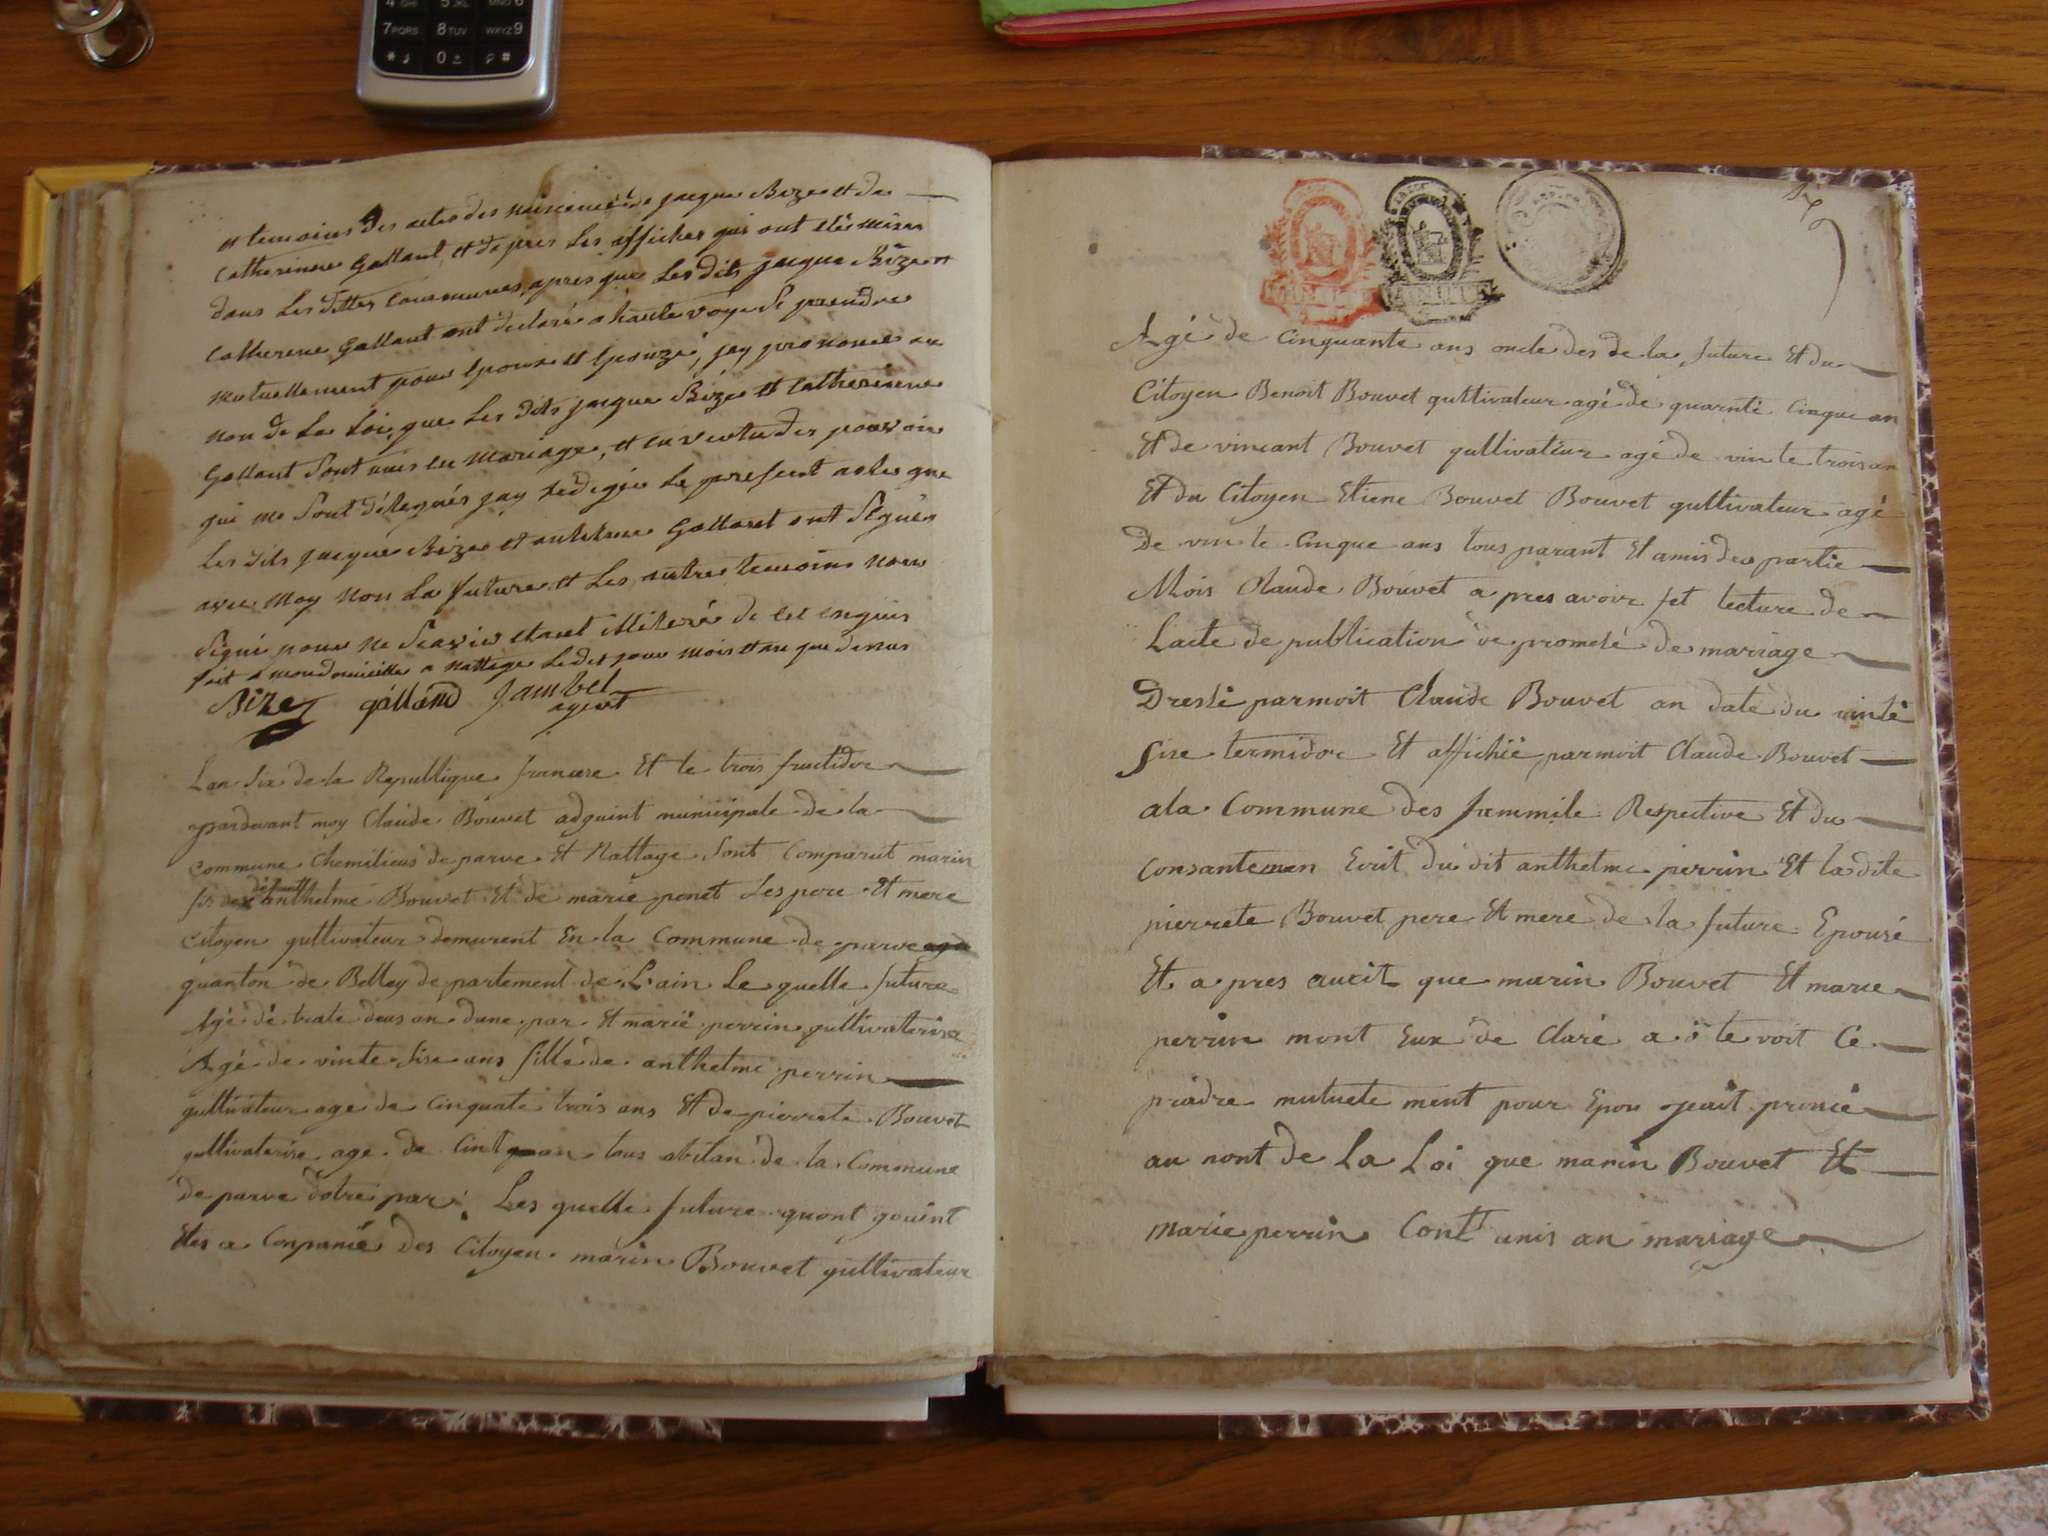 4 GHI 5 JKL MNO 6
7 PQRS 8 TUV WXYZ 9
* 0 #
et temoins des actes des naiscence de jacque Bize et de
Catherinne Gallant, et dapres Les affiches qui ont etté mises
dans Les dittes Communes, apres que Les dits jacque Bize et
Catherine Gallant ont declaré a haute voye de prendre
mutuellement pour epoux et epouze, jay prononcé au
non de La Loi, que Les dits jacque Bize et Catherinne
Gallant sont unis en mariage, et en vertu des pouvoir
qui me sont délegués jay redigée Le present acte que
Les dits jacque Bize et anthelme Gallant ont signés
avec moy non La future et Les autres temoins non
signé pour ne scavoir etant illiteré de ce enquis
fait a mon domicille a Nattage Ledit jour mois et an que dessus
Bize galland Jambel
agent
Lan six de la Republique francese Et le trois fructidor
pardevant moy Claude Bouvet adjuint municipale de la
commune Chemilieus de parve Et Nattage sont Comparut marin
défunt
fis de anthelme Bouvet Et de marie ponet Les pere Et mere
Citoyen qultivateur demurent En la Commune de parve
quanton de Belley departement de Lain Le quelle future
Agé de trate deus an dune par Et marié perrin qultivaterise
Agé de vinte sise ans fille de anthelme perrin
qultivateur age de cinquate trois ans Et de pierrete Bouvet
qultivaterise age de Cint an tous abitan de la Commune
de parve dotre par Les quelle future quont gouint
Etes a Conpanié des Citoyen marin Bouvet qultivateur
Agé de cinquante ans oncle des de la future Et du
Citoyen Benoit Bouvet qultivateur agé de quarnte cinque an
Et de vincant Bouvet qultivateur agé de vinte trois an
Et du Citoyen Etiene Bouvet Bouvet qultivateur agé
De vinte cinque ans tous parant Et amis des partie
Mois Claude Bouvet a pres avoir fet lecture de
Lacte de publication de promesé de mariage
Dressé parmoit Claude Bouvet an date du vinte
sise termidor Et affichié parmoit Claude Bouvet
a la Commune des fammile Respective Et du
Consantemen Ecrit du dit anthelme perrin Et la dite
pierrete Bouvet pere Et mere de la future Epousé
Et a pres aueit que marin Bouvet Et marie
perrin mont Eux de Claré a ote voit Ce
pradre mutuele ment pour Epou jeait pronié
au nont de La Loi que marin Bouvet Et
marie perrin Cont unis an mariage